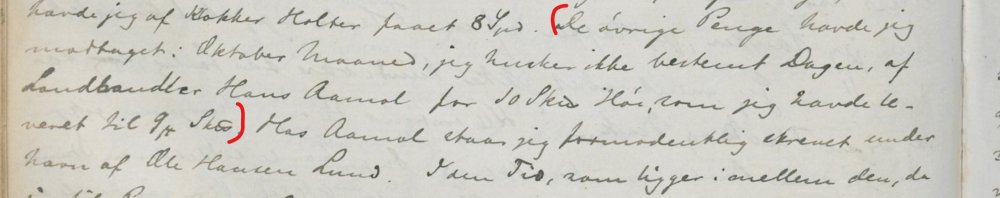 havde jeg af Kokker Holter faaet 8 Spd. (De øvrige Penge havde jeg
modtaget i Oktober Maaned, jeg husker ikke bestemt Dagen, af
Landhandler Hans Aamol for 10 Skd Höe, som jeg havde le-
veret til 9 Skd) Hos Aamol staar jeg formodentlig skrevet under
Navn af Ole Hansen Lund. I den Tid, som ligger imellem den, da